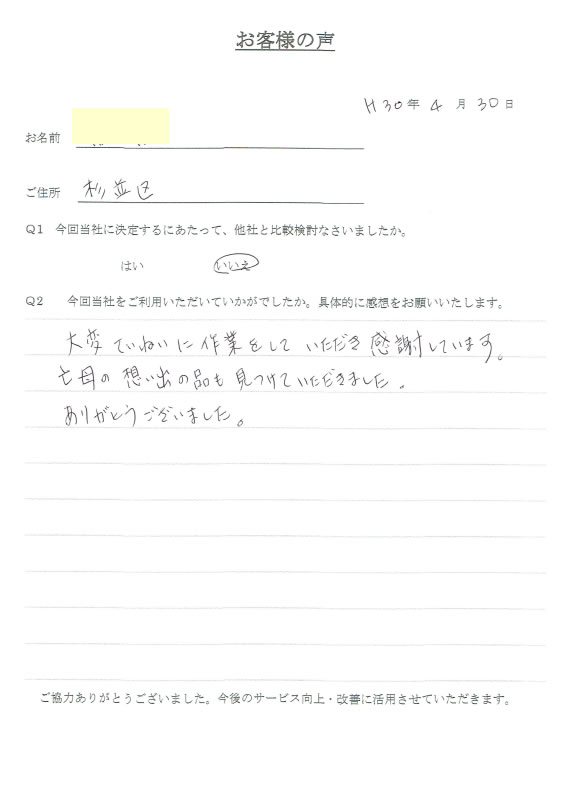 お客様の声
H30年4月30日
お名前
ご住所 杉並区
Q1 今回当社に決定するにあたって、他社と比較検討なさいましたか。
はい いいえ
Q2 今回当社をご利用いただいていかがでしたか。具体的に感想をお願いいたします。
大変ていねいに作業をしていただき感謝しています。
亡母の想い出の品も見つけていただきました。
ありがとうございました。
ご協力ありがとうございました。今後のサービス向上・改善に活用させていただきます。